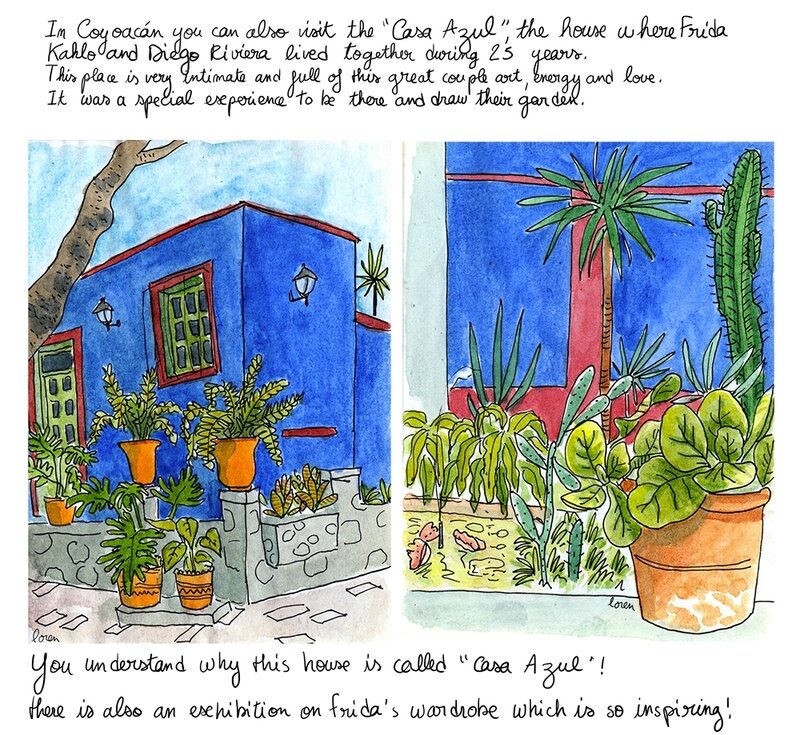 In Coyoacán you can also visit the "Casa Azul", the house where Frida
Kahlo and Diego Riviera lived together during 25 years.
This place is very intimate and full of this great couple art, energy and love.
It was a special experience to be there and draw their garden.
loren
loren
You understand why this house is called "Casa Azul"!
there is also an exhibition on Frida's wardrobe which is so inspiring!